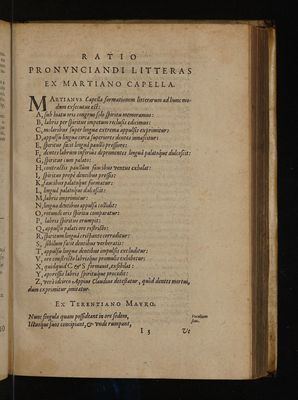 RATIO
PRONVNCIANDI LITTERAS
EX MARTIANO CAPELLA.
MARTIANVS Capella formationem litterarum ad hunc modum executus est:
A, sub hiatu oris congruo solo spiritu memoramus:
B, labris per spiritus impetum reclusis edicimus:
C, molaribus super linguæ extrema appulsis exprimitur:
D, appulsu linguæ circa superiores dentes innascitur:
E, spiritus facit lingua paullo pressiore:
F, dentes labrum inferius deprimentes lingua palatoque dulcescit:
G, spiritus cum palato:
H, contractis paulùm faucibus ventus exhalat:
I, spiritus propè dentibus pressis:
K, faucibus palatoque formatur:
L, lingua palatoque dulcescit:
M, labris imprimitur:
N, lingua dentibus appulsa collidit:
O, rotundi oris spiritu comparatur:
P, labris spiritus erumpit:
Q, appulsu palati ore restricto:
R, spiritum lingua crispante corraditur:
S, sibilum facit dentibus verberatis:
T, appulsu linguæ dentibus impulsis excluditur:
V, ore constricto labrisque promulis exhibetur:
X, quidquid C & S formauit, exsibilat:
Y, appressis labris spirituque procedit:
Z, verò idcirco Appius Claudius detestatur, quòd dentes mortui,
dum exprimitur, imitatur.
EX TERENTIANO MAVRO.
Nunc singula quum possideant in ore sedem,
Ictosque sonos concipiant, &
I 3
Vt